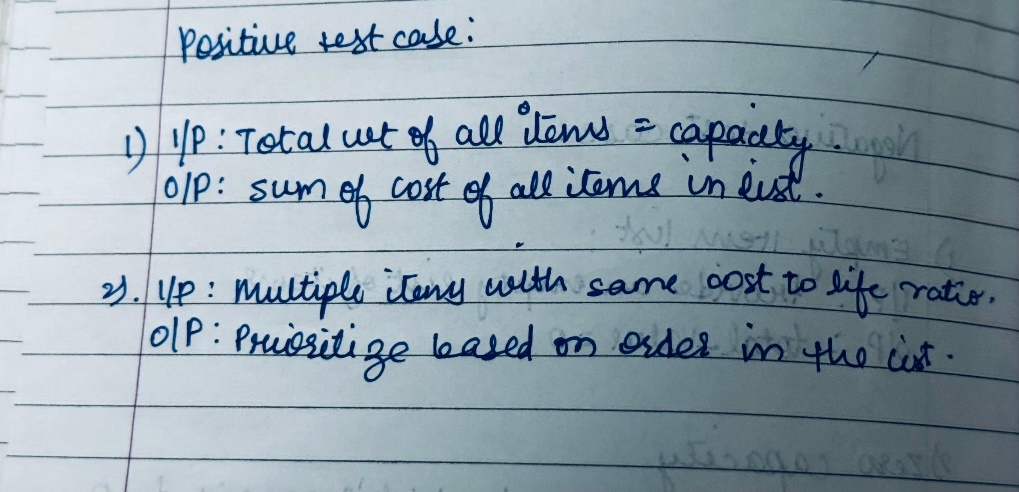 Positive test case:
1) I/P: Total wt of all items = capacity.
O/P: sum of cost of all items in list.
2). I/P: Multiple items with same cost to life ratio.
O/P: Prioritize based on order in the list.